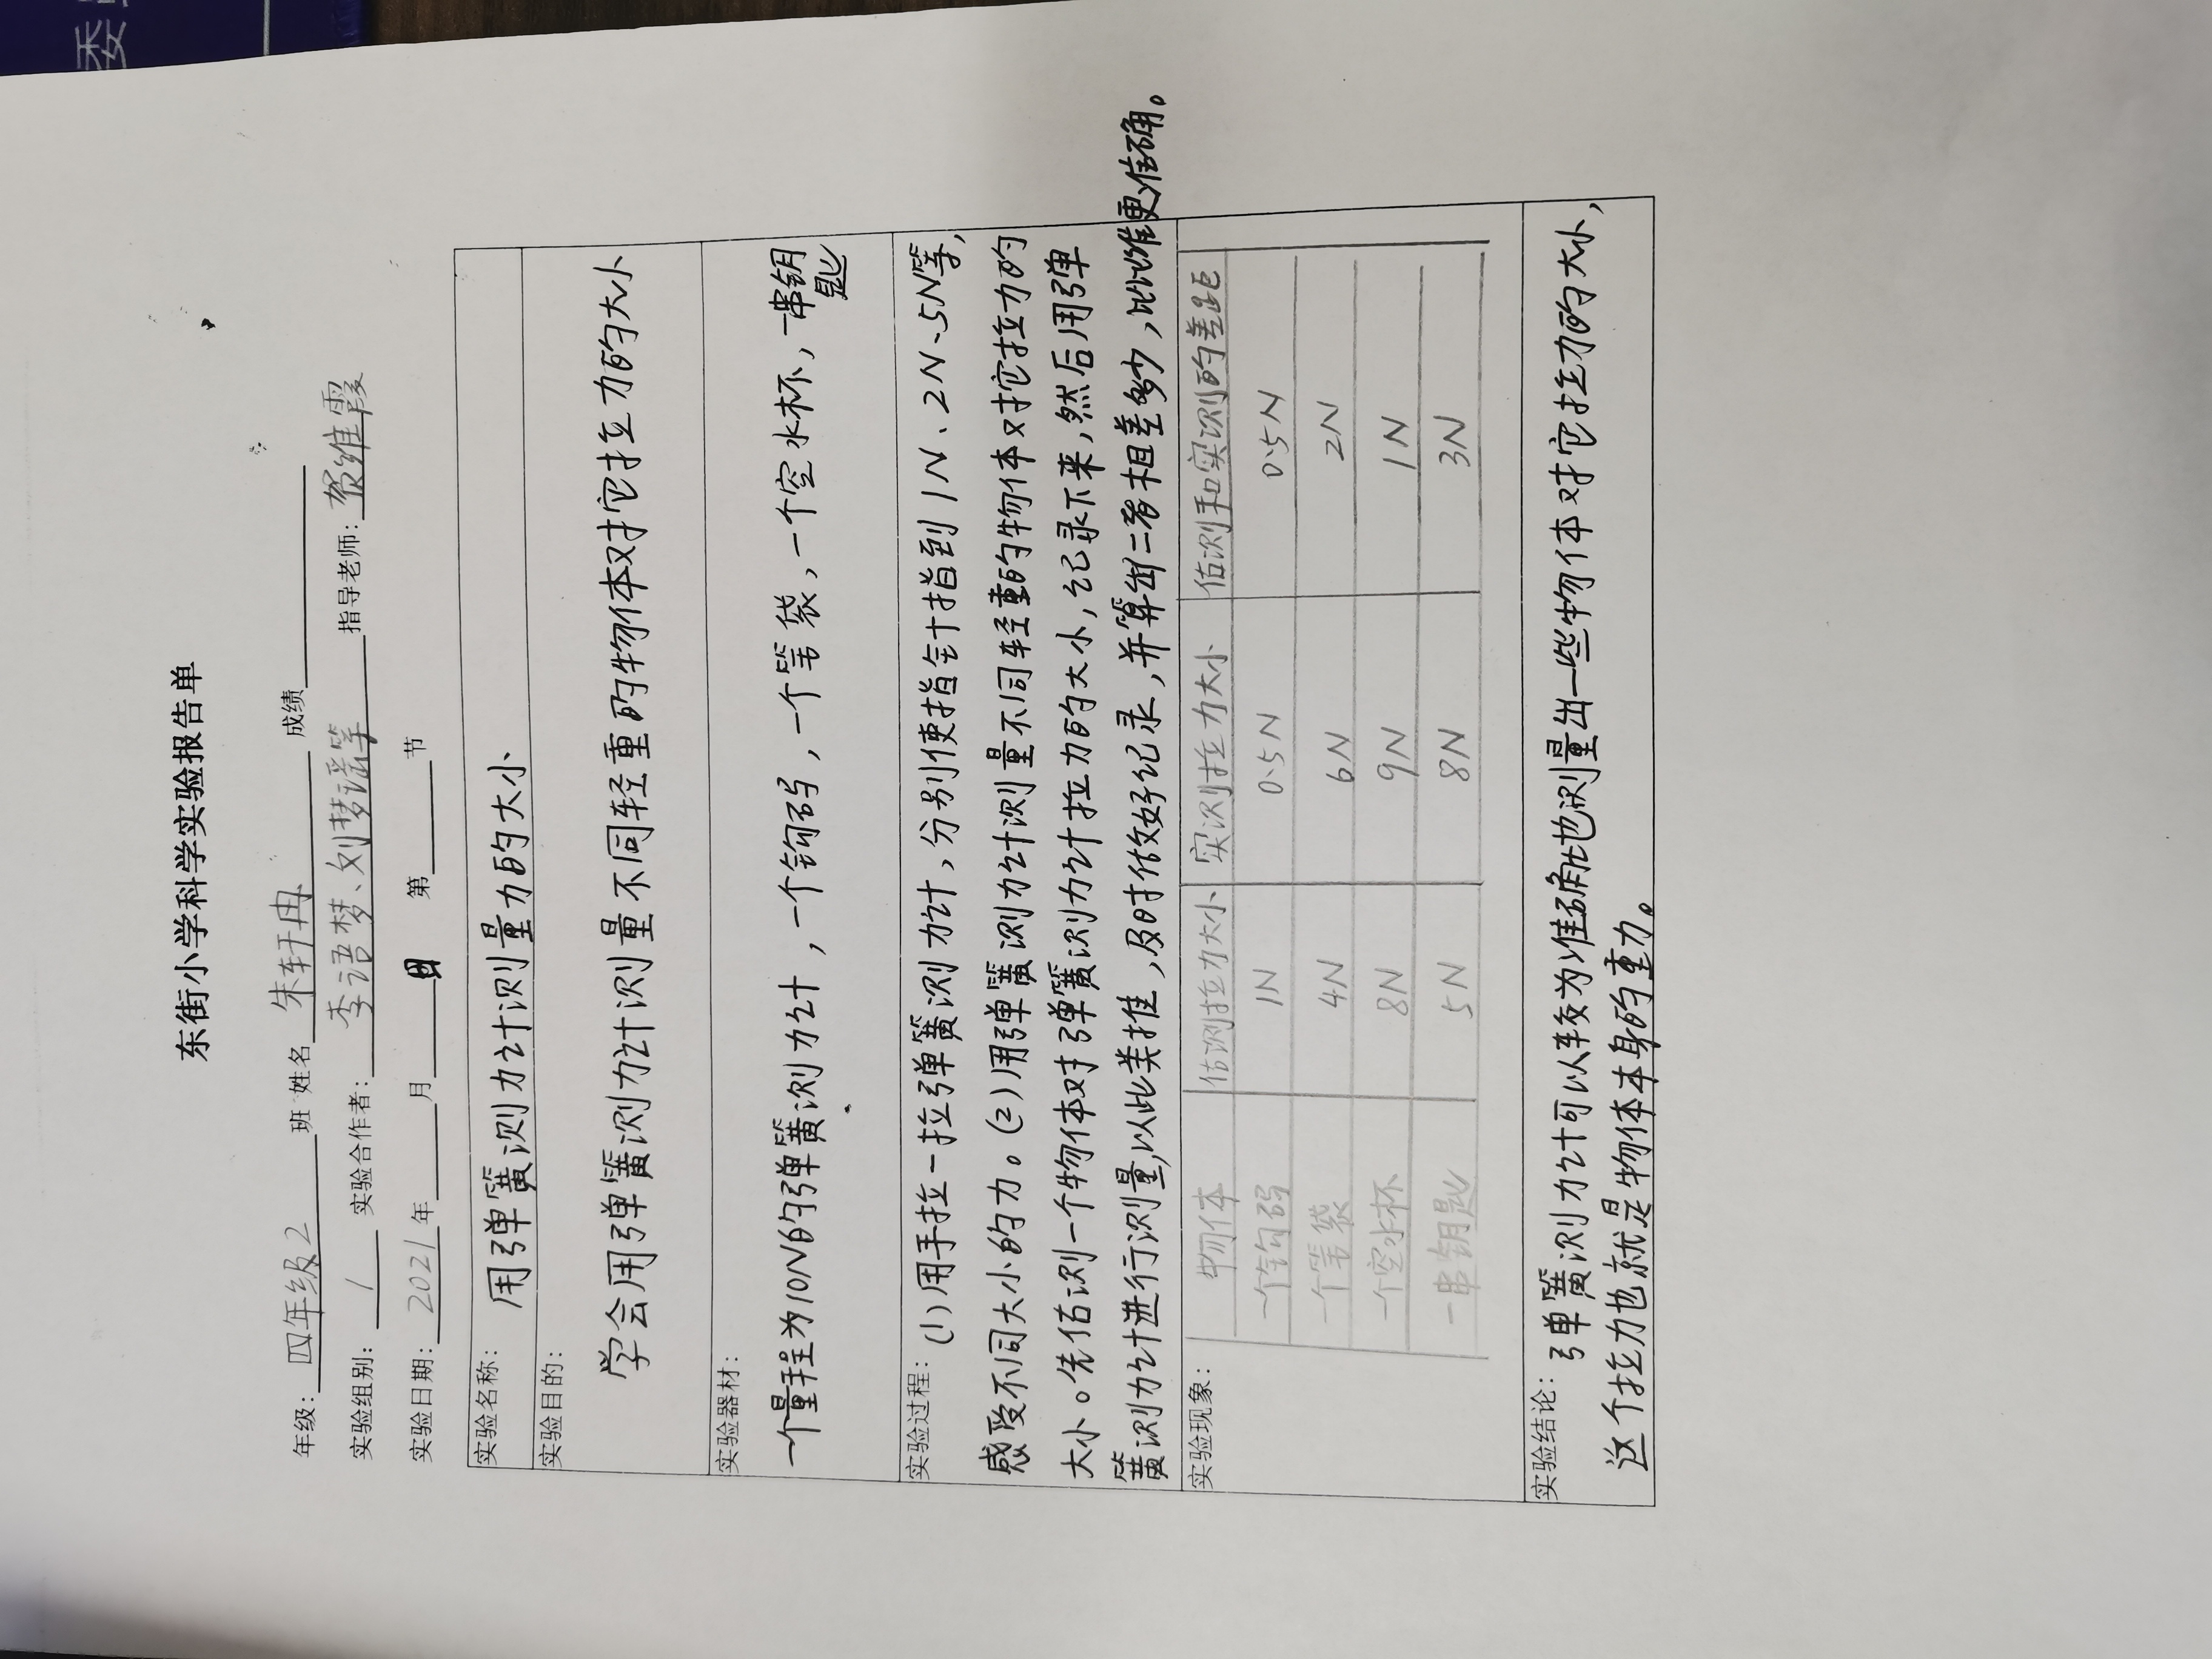 委
东街小学科学实验报告单
年级：四年级2 班 姓名 朱轩冉 成绩
实验组别： 1 实验合作者： 李语梦、刘梦谣等 指导老师： 贺维霞
实验日期： 2021 年 月 日 第 节
实验名称： 用弹簧测力计测量力的大小
实验目的：
学会用弹簧测力计测量不同轻重的物体对它拉力的大小
实验器材：
一个量程为10N的弹簧测力计，一个钩码，一个笔袋，一个空水杯，一串钥匙
实验过程：（1）用手拉一拉弹簧测力计，分别使指针指到1N、2N、5N等，
感受不同大小的力。（2）用弹簧测力计测量不同轻重的物体对它拉力的
大小。先估测一个物体对弹簧测力计拉力的大小，记录下来，然后用弹
簧测力计进行测量，以此类推，及时做好记录，并算出二者相差多少，比比谁更准确。
实验现象：
物体 估测拉力大小 实测拉力大小 估测和实测的差距
一个钩码 1N 0.5N 0.5N
一个笔袋 4N 6N 2N
一个空水杯 8N 9N 1N
一串钥匙 5N 8N 3N
实验结论： 弹簧测力计可以较为准确地测量出一些物体对它拉力的大小，
这个拉力也就是物体本身的重力。